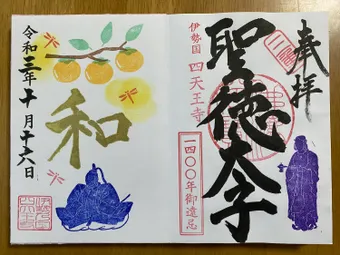 奉拝
聖徳太子
伊勢国 四天王寺
一四〇〇年御遠忌
和
令和三年十月十六日